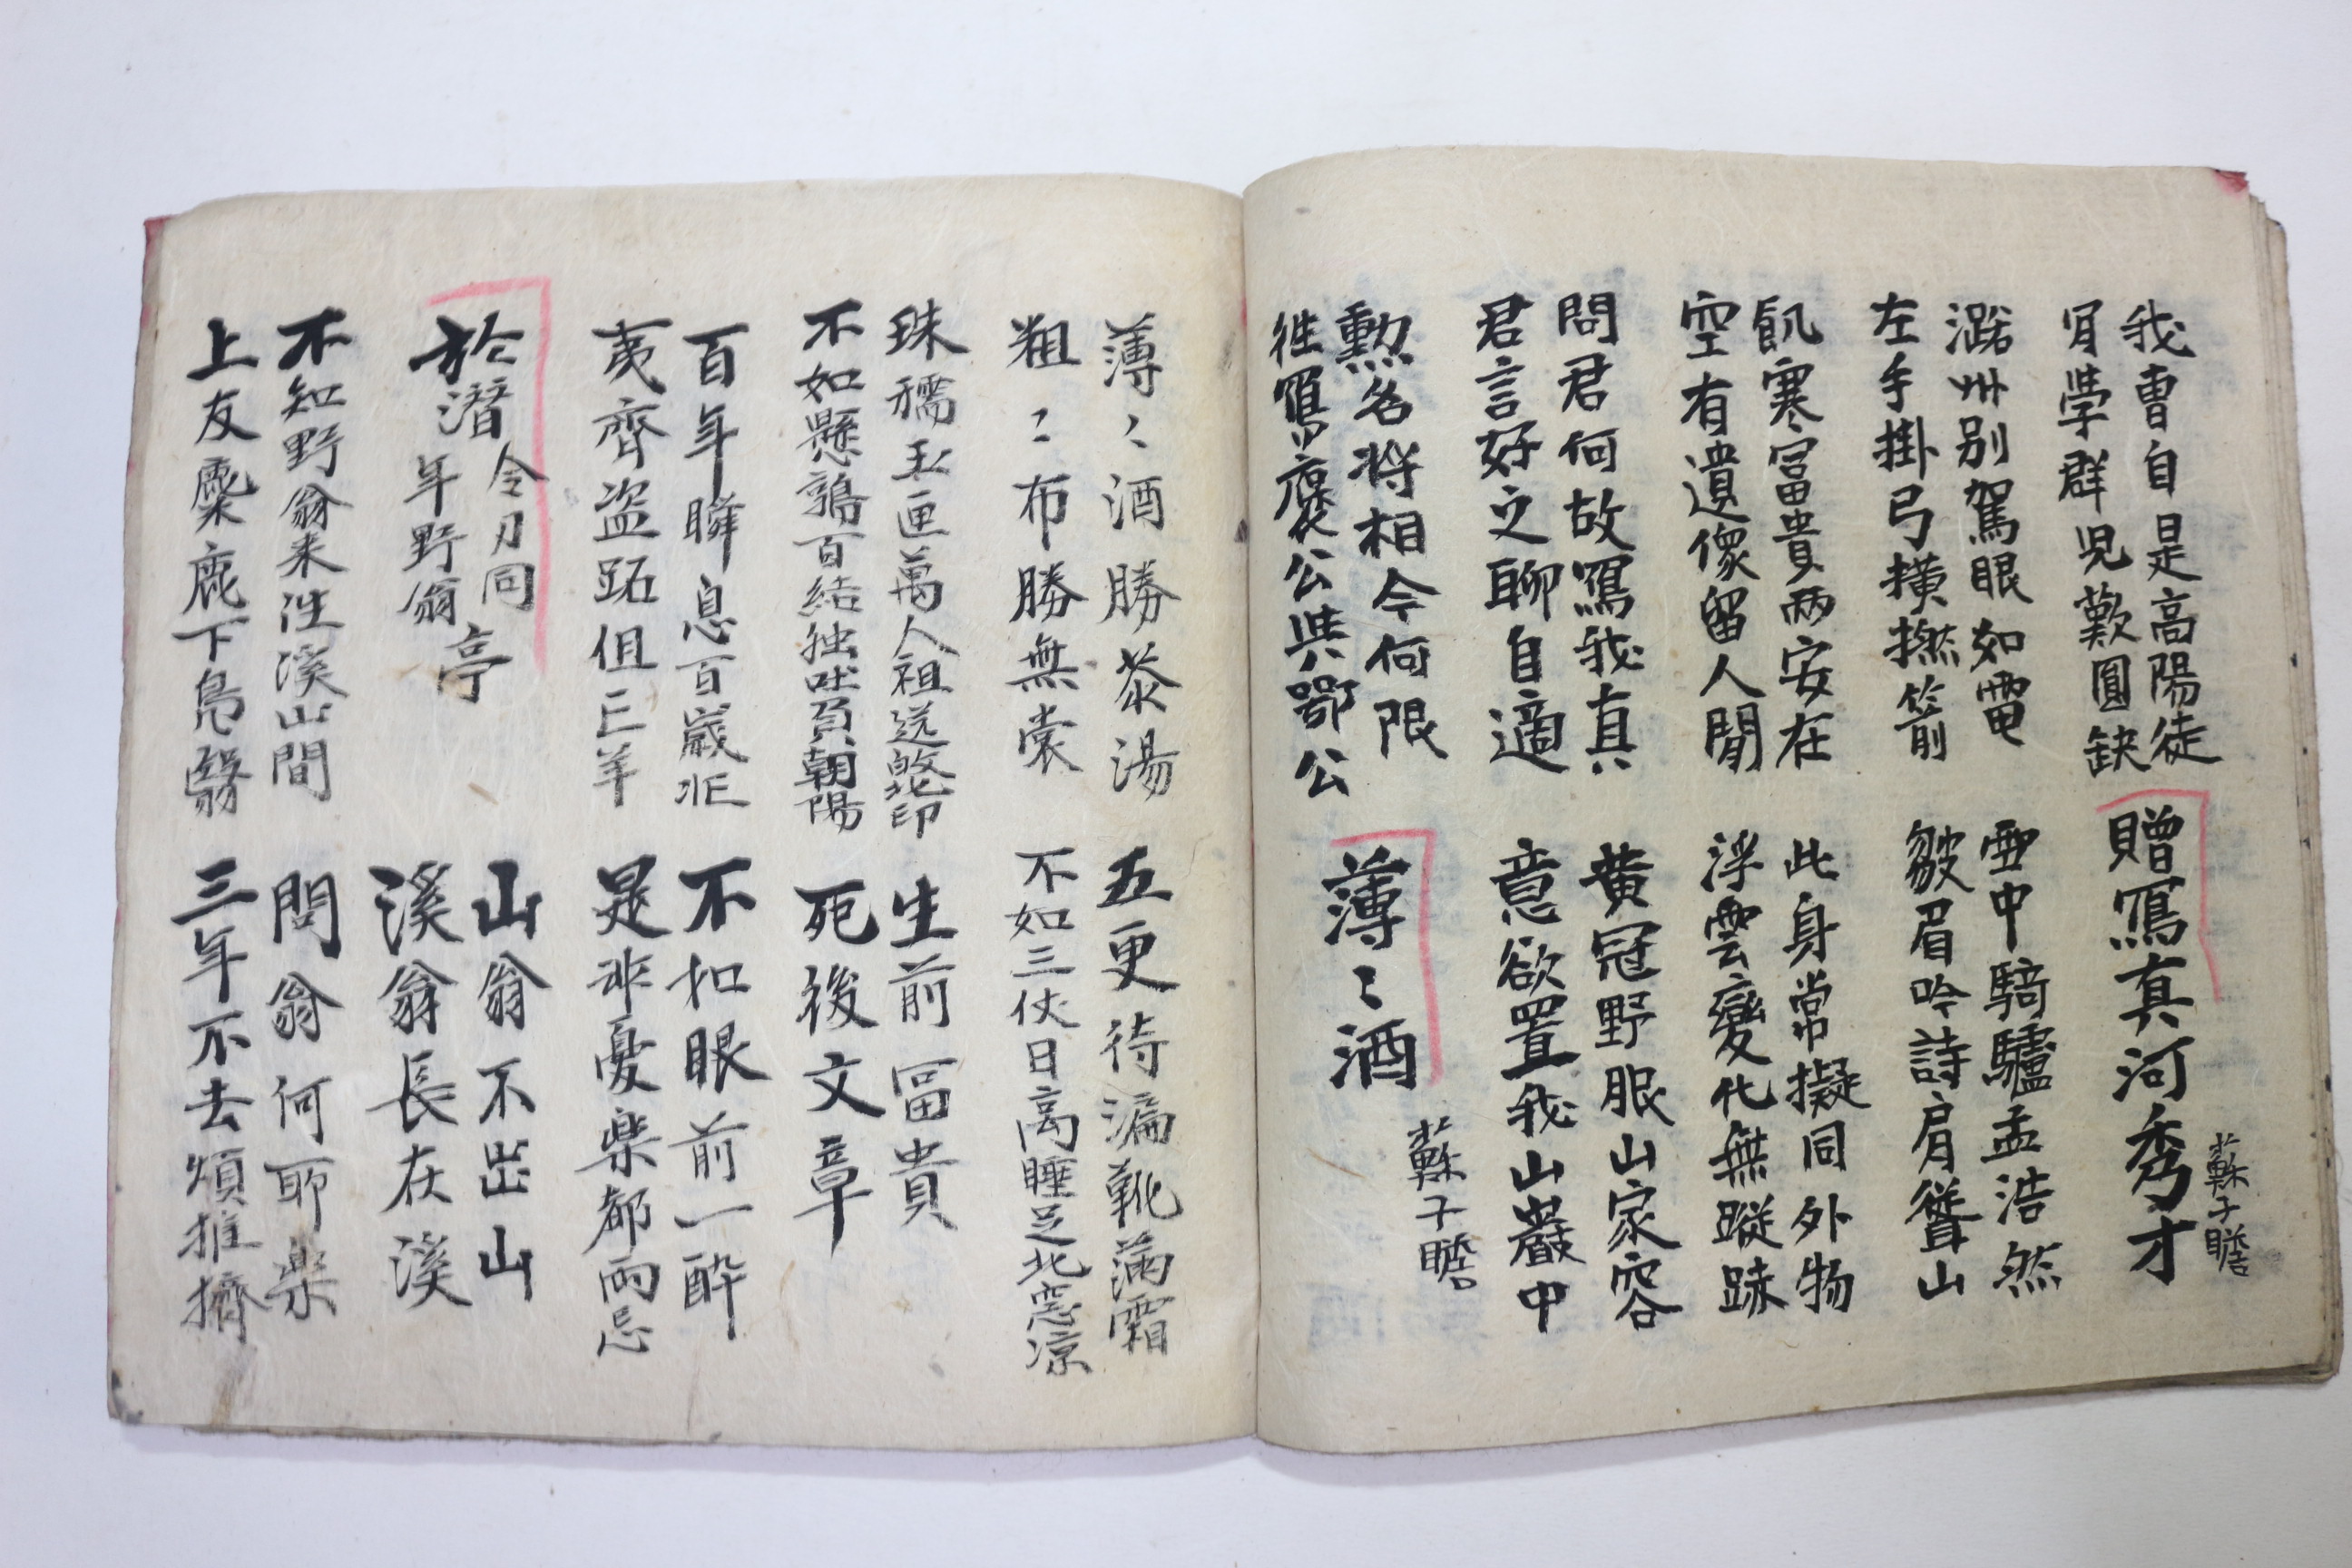 我曹自是高陽徒
肯学群児歎圓缺
贈寫真河秀才
蘇子瞻
潞州別駕眼如電
左手掛弓横撚箭
雪中騎驢孟浩然
皺眉吟詩肩聳山
飢寒冨貴両安在
空有遺像留人間
此身常擬同外物
浮雲變化無蹤跡
問君何故寫我真
君言好之聊自適
黄冠野服山家容
意欲置我山巖中
勲名将相今何限
往寫褒公與鄂公
薄〻酒
蘇子瞻
薄〻酒勝茶湯
粗〻布勝無裳
五更待漏靴満霜
不如三伏日高睡足北窓凉
珠襦玉匣萬人祖送北邙
不如懸鶉百結独坐負朝陽
生前冨貴
死後文章
百年瞬息百歳忙
夷齊盗跖俱亡羊
不如眼前一酔
是非憂楽都両忘
於潛令刀同年野翁亭
山翁不出山
溪翁長在溪
不知野翁来往溪山間
上友麋鹿下鳧鷖
問翁何耶楽
三年不去煩推擠